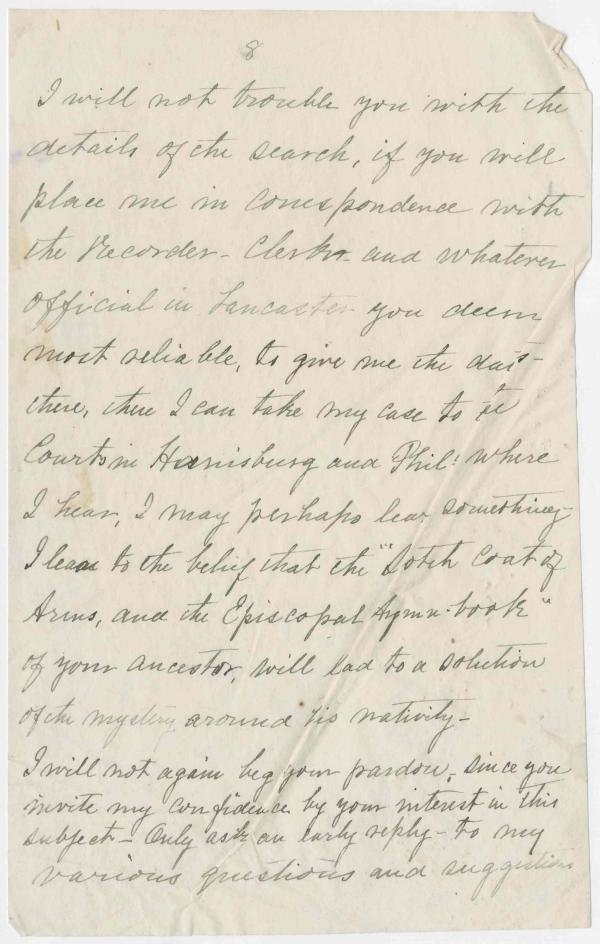 8
I will not trouble you with the
details of the search, if you will
place me in correspondence with
the Recorder - Clerks - and whatever
official in Lancaster you deem
most reliable, to give me the
there, then I can take my case to the
Courts in Harrisburg and Phil: where
I hear, I may perhaps lear something -
I lean to the belief that the "Scotch Coat of
Arms, and the Episcopal Hymn-book"
of your ancestor, will lead to a solution
of the mystery around his nativity -
I will not again beg your pardon, since you
invite my confidence by your interest in this
subject - Only ask an early reply - to my
various questions and suggestions